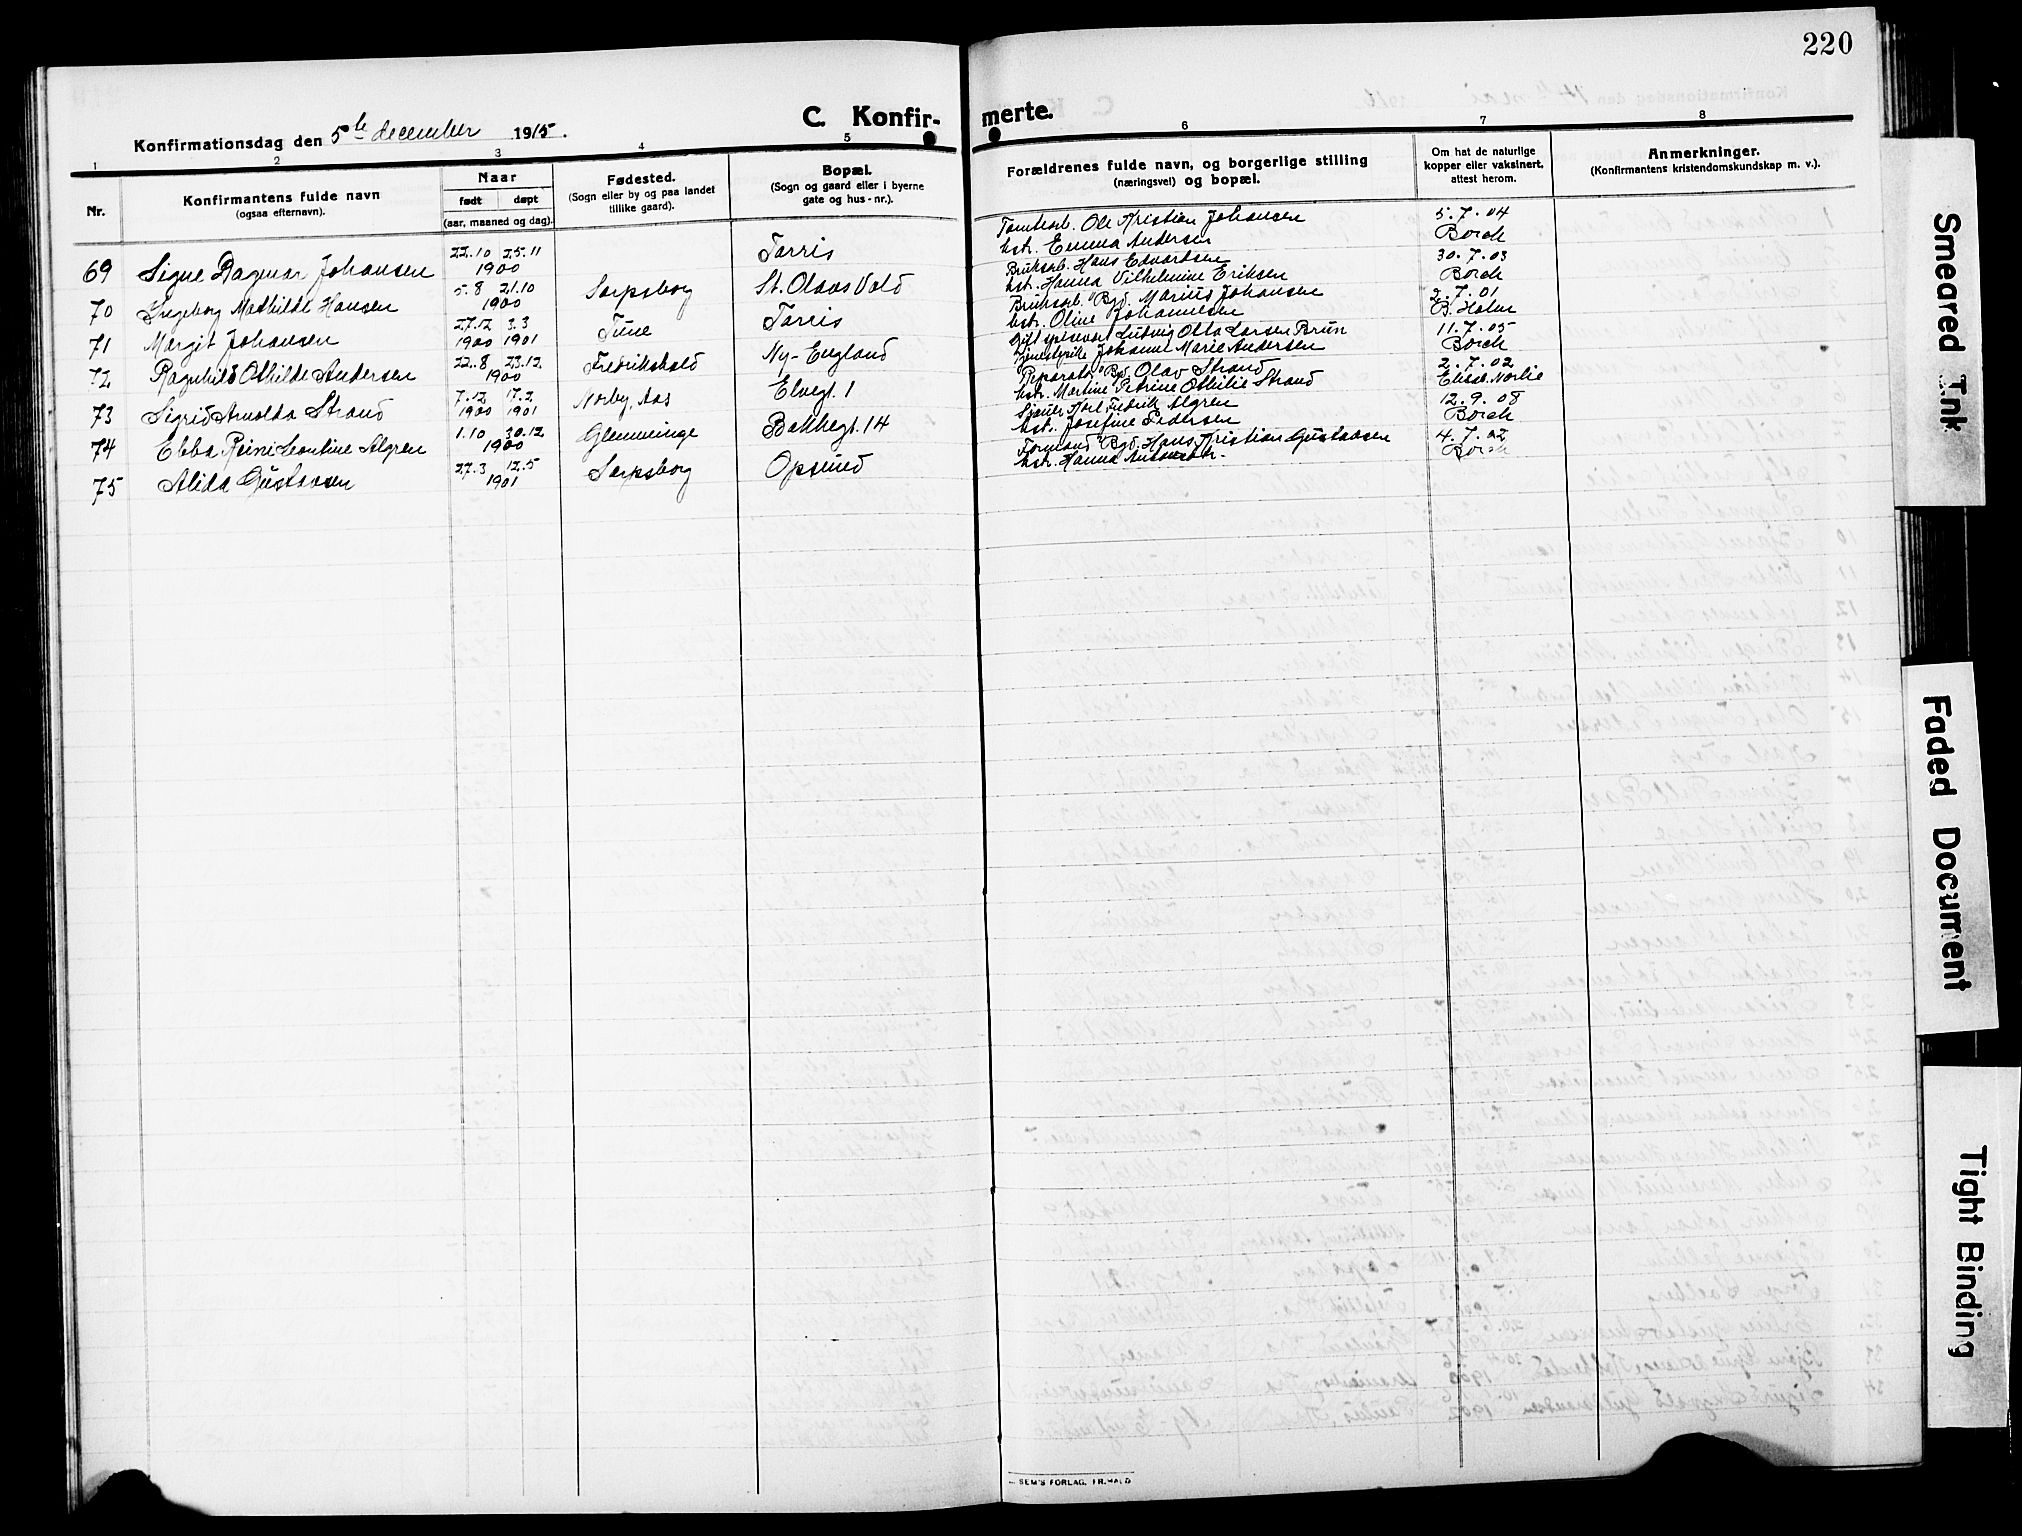 220
C. Konfir-
merte.
Konfirmationsdag den 5te december 1915.
1 2 3 4 5 6 7 8
Nr.
Konfirmantens fulde navn
(ogsaa efternavn).
Naar
født døpt
(aar, maaned og dag).
Fødested.
(Sogn eller by og paa landet
tillike gaard).
Bopæl.
(Sogn og gaard eller i byerne
gate og hus-nr.).
Forældrenes fulde navn, og borgerlige stilling
(næringsvei) og bopæl.
Om hat de naturlige
kopper eller vaksinert,
attest herom.
Anmerkninger.
(Konfirmantens kristendomskundskap m. v.).
69 Signe Dagmar Johansen 22.10 25.11 1900 Torris
Tomtearb. Ole Kristian Johansen
hstr. Emma Andersen
5.7.04
Borch
70 Ingeborg Mathilde Hansen 5.8 21.10 1900 Sarpsborg St. Olavs Vold
Bruksarb. Hans Edvardsen
hst. Hanna Vilhelmine Eriksen
30.7.03
Borch
71 Margit Johansen 27.12 1900 3.3 1901 Tune Torris
Bruksarb. Bgd. Marius Johansen
hstr. Oline Johannesen
2.7.01
B. Holm
72 Ragnhild Othilde Andersen 22.8 23.12 1900 Fredrikshald Ny-England
Gift Ludvig Otto Larsen Brun
Johanne Marie Andersen
11.7.05
Borch
73 Sigrid Arnolda Strand 7.12 1900 17.2 1901 Norby, Aas Elvegt. 1
Reparatør Bgd. Olav Strand
hstr. Martine Petrine Othilie Strand
2.7.02
Elise Norlie
74 Ebba Reini Leontine Algren 1.10 30.12 1900 Glemminge Bakkegt. 14
Sjauer Karl Fredrik Algren
hst. Josefine Pedersen
12.9.08
Borch
75 Alida Gustavsen 27.3 12.5 1901 Sarpsborg Opsund
Formand Bgd. Hans Kristian Gustavsen
hstr. Hanna
4.7.02
Borch
SEM'S FORLAG, FR.HALD
Smeared Ink
Faded Document
Tight Binding